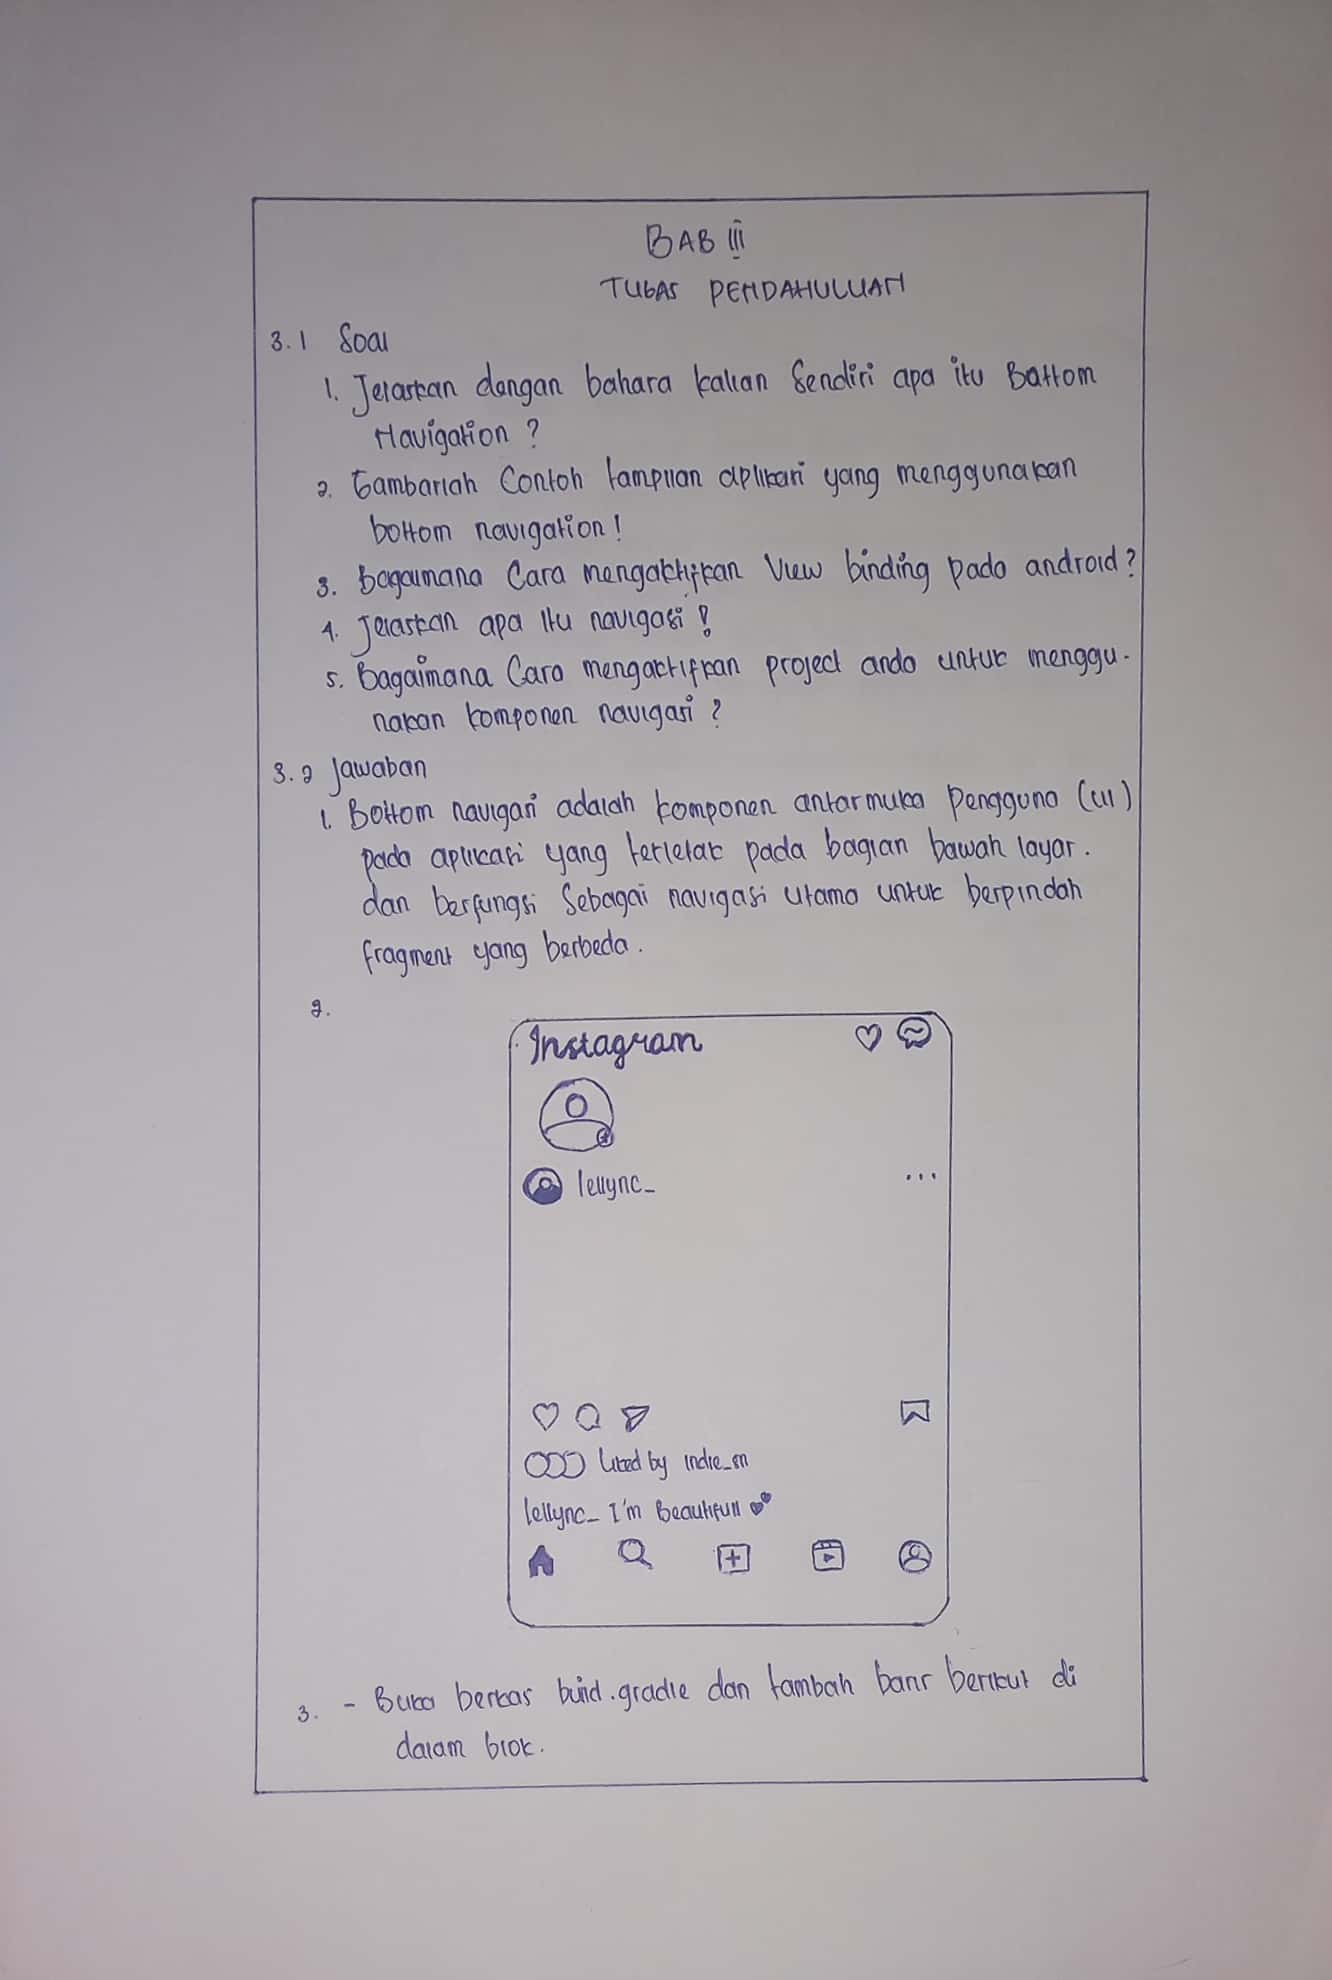 BAB III
TUGAS PENDAHULUAN
3.1 Soal
1. Jelaskan dengan bahasa kalian sendiri apa itu Battom
Navigation ?
2. Gambarlah Contoh tampilan aplikasi yang menggunakan
bottom navigation !
3. Bagaimana Cara mengaktifkan View binding pada android ?
4. Jelaskan apa itu navigasi !
5. Bagaimana Cara mengaktifkan project anda untuk menggu-
nakan komponen navigasi ?
3.2 Jawaban
1. Bottom navigasi adalah komponen antarmuka Pengguna (UI)
pada aplikasi yang terletak pada bagian bawah layar.
dan berfungsi Sebagai navigasi utama untuk berpindah
fragment yang berbeda.
2.
Instagram
lellync_ ...
Liked by indie_sn
lellync_ I'm Beautifull
3. - Buka berkas build.gradle dan tambah baris berikut di
dalam blok.